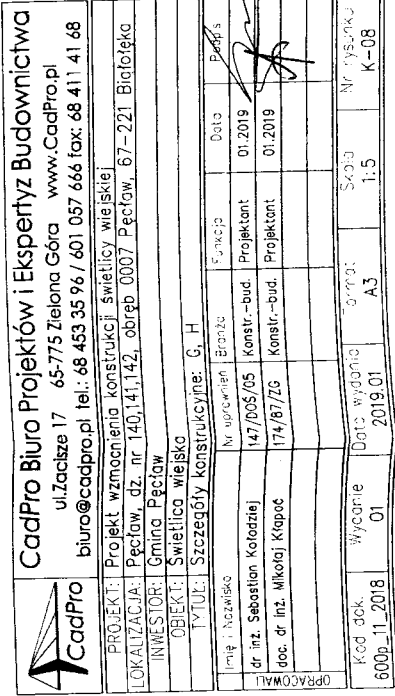 CadPro
CadPro Biuro Projektów i Ekspertyz Budownictwa
ul.Zacisze 17 65-775 Zielona Góra www.CadPro.pl
biuro@cadpro.pl tel.: 68 453 35 96 / 601 057 666 fax: 68 411 41 68
PROJEKT: Projekt wzmocnienia konstrukcji świetlicy wiejskiej
LOKALIZACJA: Pęcław, dz. nr 140,141,142, obręb 0007 Pęcław, 67-221 Białołęka
INWESTOR: Gmina Pęcław
OBIEKT: Świetlica wiejska
TYTUŁ: Szczegóły konstrukcyjne: G, H
OPRACOWALI
Imię i Nazwisko Nr uprawnień Branża Funkcja Data Podpis
dr inż. Sebastian Kołodziej 147/DOŚ/05 Konstr.-bud. Projektant 01.2019
doc. dr inż. Mikołaj Kłapoć 174/87/ZG Konstr.-bud. Projektant 01.2019
Kod dok. Wydanie Data wydania Format Skala Nr rysunku
600p_11_2018 01 2019.01 A3 1:5 K-08